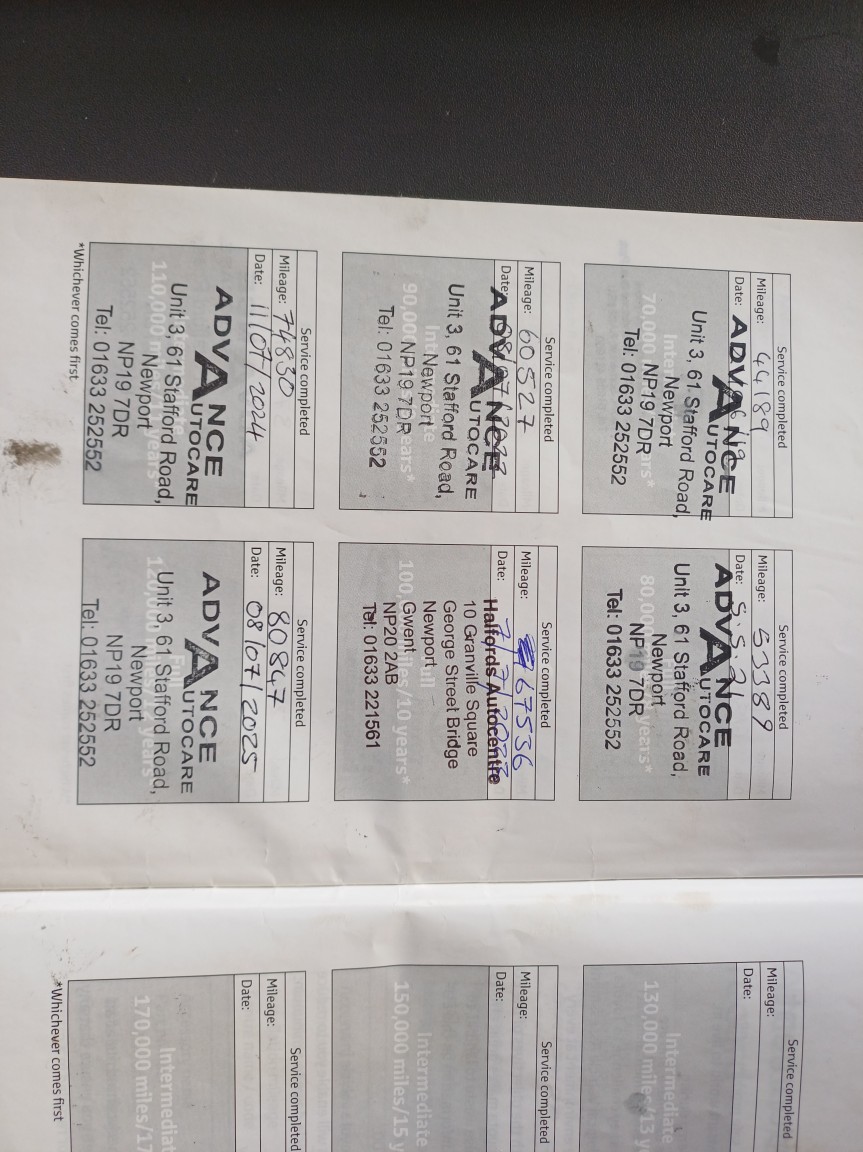 Service completed
Mileage: 44189
Date:
ADVANCE
AUTOCARE
Unit 3, 61 Stafford Road,
Newport
70,000 NP19 7DR
Tel: 01633 252552
Service completed
Mileage: 53389
Date: 5.5.21
ADVANCE
AUTOCARE
Unit 3, 61 Stafford Road,
Newport
NP19 7DR years*
Tel: 01633 252552
Service completed
Mileage: 60527
Date: 08/07/2022
ADVANCE
AUTOCARE
Unit 3, 61 Stafford Road,
Newport
90,000 NP19 7DR years*
Tel: 01633 252552
Service completed
Mileage: 67536
Date: 7/7/2023
Halfords Autocentre
10 Granville Square
George Street Bridge
Newport
Gwent
100,000 miles/10 years*
NP20 2AB
Tel: 01633 221561
Service completed
Mileage: 74830
Date: 11/07/2024
ADVANCE
AUTOCARE
Unit 3, 61 Stafford Road,
110,000 Newport years*
NP19 7DR
Tel: 01633 252552
Service completed
Mileage: 80847
Date: 08/07/2025
ADVANCE
AUTOCARE
Unit 3, 61 Stafford Road,
120,000 miles/12 years*
Newport
NP19 7DR
Tel: 01633 252552
*Whichever comes first
Service completed
Mileage:
Date:
Intermediate
130,000 miles/13 y
Service completed
Mileage:
Date:
Intermediate
150,000 miles/15 y
Service completed
Mileage:
Date:
Intermediat
170,000 miles/17
*Whichever comes first